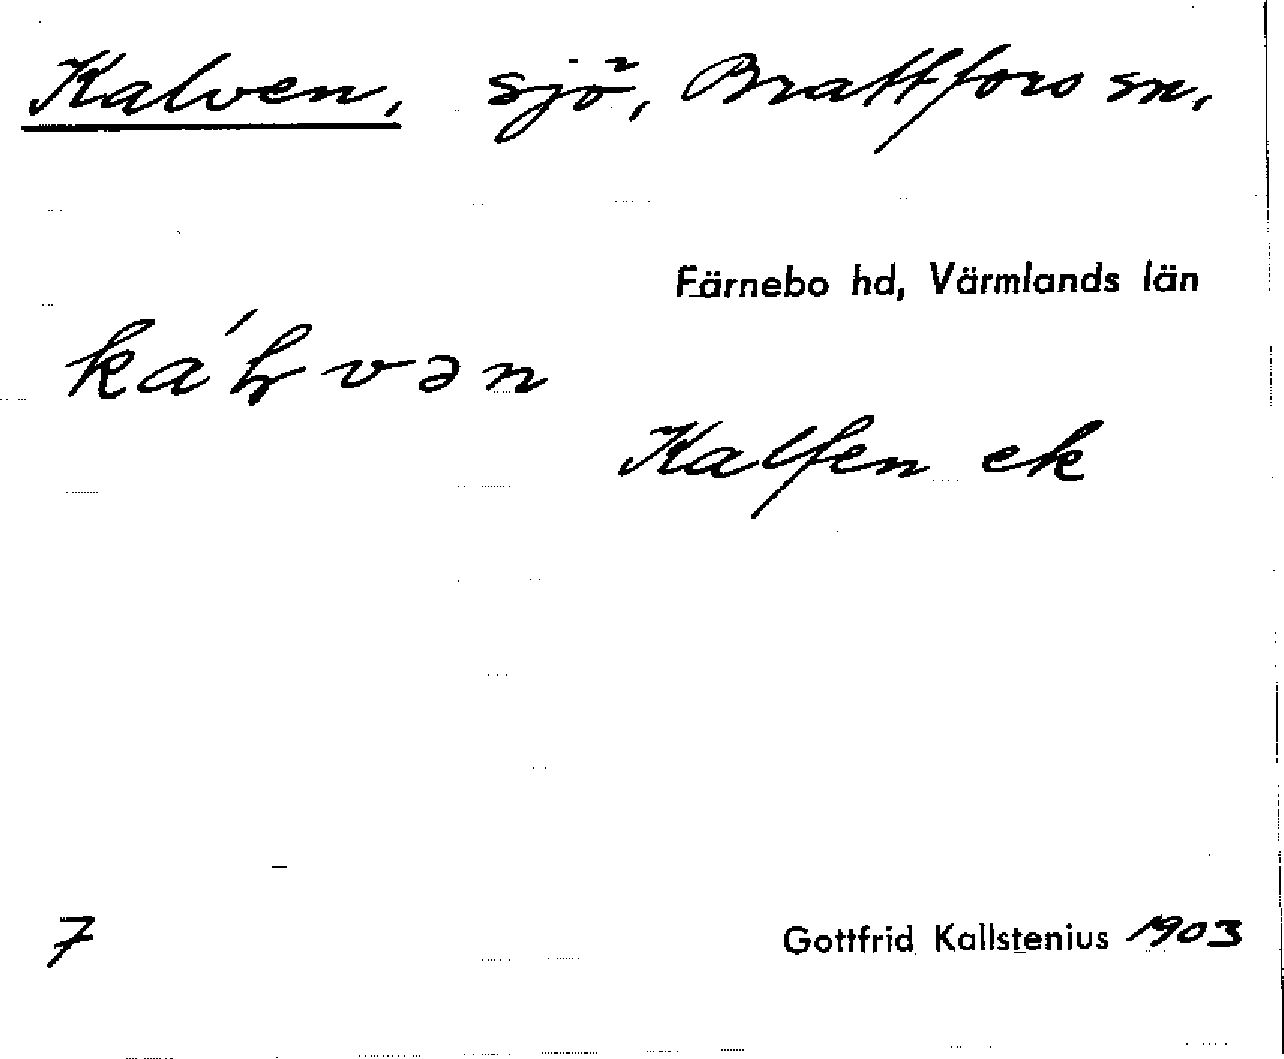 Kalven, sjö, Brattfors sn.
Färnebo hd, Värmlands län
Kalfen ek
7
Gottfrid Kallstenius 1903